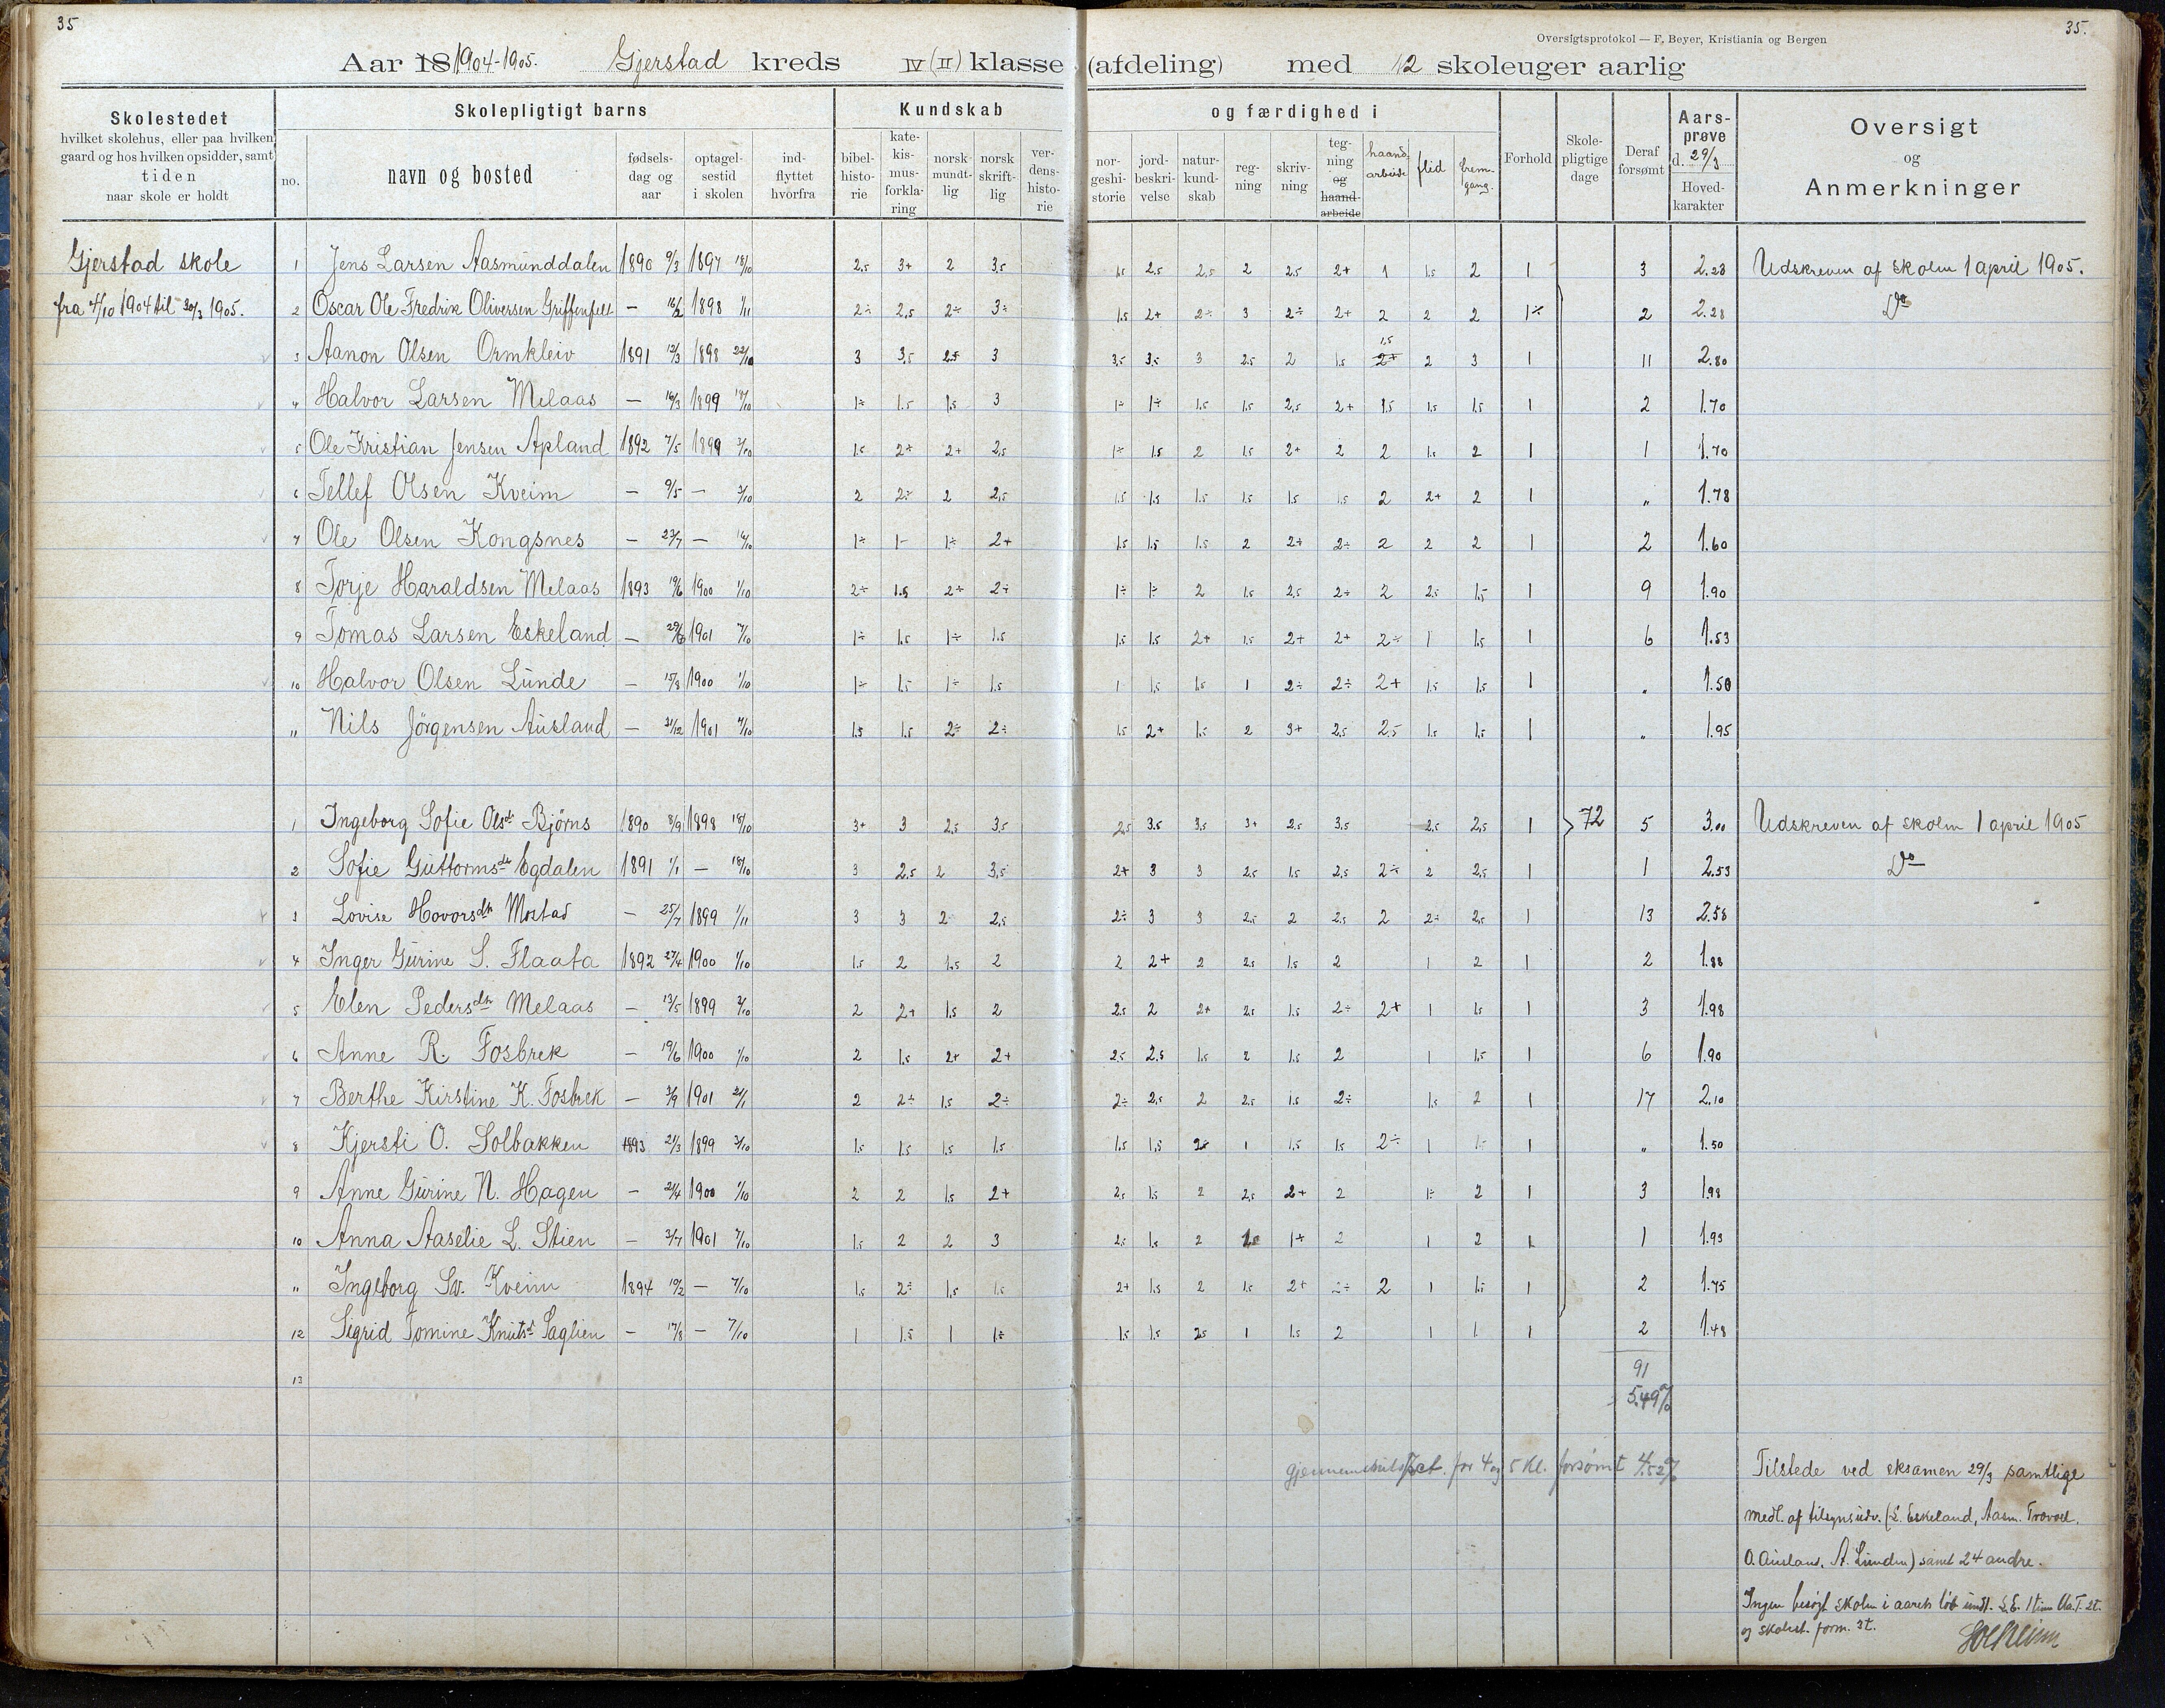 35
35.
Oversigtsprotokol — F. Beyer, Kristiania og Bergen
Aar 18 1904-1905. Gjerstad kreds IV (II) klasse (afdeling) med 12 skoleuger aarlig
Skolestedet hvilket skolehus, eller paa hvilken gaard og hos hvilken opsidder, samt tiden naar skole er holdt
Skolepligtigt barns
no. navn og bosted fødselsdag og aar optagelsestid i skolen indflyttet hvorfra
Kundskab og færdighed i
bibelhistorie katekismusforklaring norsk mundtlig norsk skriftlig verdenshistorie norgeshistorie jordbeskrivelse naturkundskab regning skrivning tegning og haandarbeide haandarbeide flid fremgang.
Forhold Skolepligtige dage Deraf forsømt Aarsprøve d. 29/3 Hovedkarakter
Oversigt og Anmerkninger
Gjerstad skole
fra 4/10 1904 til 30/3 1905.
1 Jens Larsen Aasmunddalen 1890 9/3 1897 18/10 2,5 3+ 2 3,5 1,5 2,5 2,5 2 2,5 2+ 1 1,5 2 1 3 2.28 Udskreven af skolen 1 april 1905.
2 Oscar Ole Fredrik Oliversen Griffenfelt — 16/2 1898 1/11 2÷ 2,5 2÷ 3÷ 1,5 2+ 2÷ 3 2÷ 2+ 2 2 2 1÷ 2 2.28 Do
3 Aanon Olsen Ormkleiv 1891 12/3 1898 22/10 3 3,5 2,5 3 3,5 3,5 3 2,5 2 1,5 2+ 1,5 2 3 1 11 2.80
4 Halvor Larsen Melaas — 16/3 1899 18/10 1÷ 1.5 1,5 3 1÷ 1÷ 1,5 1,5 2,5 2+ 1,5 1,5 1,5 1 2 1.70
5 Ole Kristian Jensen Apland 1892 7/5 1899 3/10 1,5 2+ 2+ 2,5 1÷ 1,5 2 1,5 2+ 2 2 1,5 2 1 1 1.70
6 Tellef Olsen Kveim — 9/5 — 3/10 2 2÷ 2 2,5 1,5 1,5 1,5 1,5 1,5 1,5 2 2+ 2 1 " 1.78
7 Ole Olsen Kongsnes — 23/7 — 16/10 1÷ 1- 1÷ 2+ 1,5 1,5 1,5 2 2÷ 2÷ 2 2 2 1 2 1.60
8 Torje Haraldsen Melaas 1893 19/6 1900 1/10 2÷ 1.5 2+ 2÷ 1÷ 1÷ 2 1,5 2,5 2÷ 2 2,5 1,5 1 9 1.90
9 Tomas Larsen Eskeland — 29/6 1901 7/10 1÷ 1,5 1÷ 1.5 1,5 1,5 2+ 1,5 2+ 2+ 2÷ 1 1,5 1 6 1.53
10 Halvor Olsen Lunde — 15/8 1900 1/10 1÷ 1,5 1÷ 1,5 1 1,5 1,5 1 2÷ 2÷ 2+ 1,5 1,5 1 " 1.50
11 Nils Jörgensen Ausland — 31/12 1901 7/10 1,5 1,5 2÷ 2÷ 1,5 2+ 1,5 2 3+ 2,5 2,5 1,5 1,5 1 " 1.95
1 Ingeborg Sofie Olsdr Björns 1890 8/9 1898 18/10 3+ 3 2,5 3,5 2,5 3,5 3,5 3+ 2,5 3,5 2,5 2,5 1 72 5 3.00 Udskreven af skolen 1 april 1905
2 Sofie Guttormsdr Egdalen 1891 1/1 — 18/10 3 2,5 2 3,5 2+ 3 3 2,5 1,5 2,5 2÷ 2 2,5 1 1 2.53 Do
3 Lovise Hovorsdtr Mostad — 25/7 1899 1/11 3 3 2 2,5 2÷ 3 3 2,5 2 2,5 2 2÷ 2,5 1 13 2.58
4 Inger Gurine S. Flaata 1892 27/4 1900 1/10 1,5 2 1,5 2 2 2+ 2 2,5 1,5 2 1 2 1 2 1.88
5 Elen Pedersdtr Melaas — 13/5 1899 3/10 2 2+ 1,5 2 2,5 2 2+ 2,5 1,5 2÷ 2+ 1 1,5 1 3 1.98
6 Anne R. Fosbrek — 19/6 1900 1/10 2 1,5 2+ 2+ 2,5 2,5 1,5 2 1,5 2 1 1,5 1 6 1.90
7 Berthe Kirstine K. Fosbrek — 3/9 1901 21/1 2 2÷ 1,5 2÷ 2÷ 2,5 2 2,5 1,5 2÷ 1,5 2 1 17 2.10
8 Kjersti O. Solbakken 1893 21/3 1899 3/10 1,5 1,5 1,5 1,5 1,5 1,5 2,5 1 1,5 1,5 2÷ 1 1,5 1 " 1.50
9 Anne Gurine N. Hagen — 24/4 1900 1/10 2 2 1,5 2+ 2,5 1,5 2 2,5 2+ 2 1÷ 2 1 3 1.98
10 Anna Aaselie L. Stien — 3/7 1901 7/10 1,5 2 2 3 2,5 1,5 2 1+ 2 1 2 1 1 1.93
11 Ingeborg Sv. Kveim 1894 10/2 — 7/10 1,5 2÷ 1,5 1,5 2+ 1,5 2 1,5 2+ 2÷ 2 1 1,5 1 2 1.75
12 Sigrid Tomine Knutsd Saglien — 17/8 — 7/10 1 1.5 1 1÷ 1,5 1,5 2,5 1 1.5 2 1 1 1 2 1.48
13
91
5.49%
gjennemsnitspct. for 4 og 5 kl. forsømt 4.52%
Tilstede ved eksamen 29/3 samtlige
medl. af tilsynsudv. (L. Eskeland, Aasm.
O. Ausland, A. Lunden) samt 24 andre.
Ingen besøgt skolen i aarets løb undt. L.E. 1 time Aa.T. 2t.
og skolest. form. 3t.